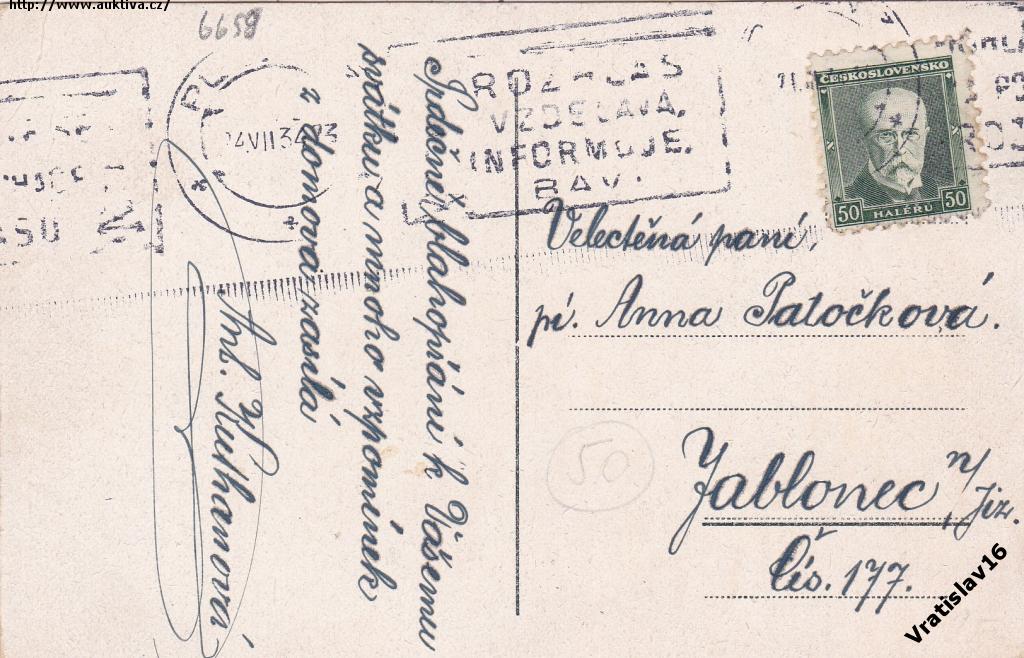 http://www.auktiva.cz/
6659
Srdečné blahopřání k Vášemu
svátku a mnoho vzpomínek
z domova zasílá
24 VII 34
ROZHLAS
VZDĚLÁVÁ,
INFORMUJE,
BAVÍ
ČESKOSLOVENSKO
50 50
HALÉŘŮ
Velectěná paní,
pí. Anna Patočková.
50
Jablonec n/Jiz.
Čís. 177.
Vratislav16